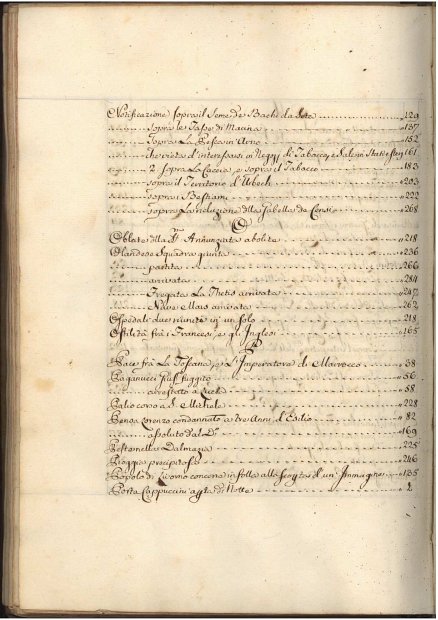 Notificazione sopra il Seme de Bachi da Seta 129
sopra le Tasse di Marina 137
sopra La Pesca in Arno 152
che vieta d'interessarsi in Neggj di Tabacco, e Salino Stati esteri 161
2 sopra La Caccia, e sopra il Tabacco 183
sopra il Territorio d' 203
sopra i Bestiami 222
sopra La riduzione della Gabella de Censi 268
O
Oblate della SS. Annunziata abolite 218
Olandese Squadra giunta 236
partita 266
arrivata 284
Fregata La Thetis arrivata 247
Nave Mars arrivata 262
Ospedali due riuniti in un solo 218
Ostilità frà i Francesi, e gl' Inglesi 165
P
Pace frà La Toscana, e L'Imperatore di Marrocco 38
Paganucci fuggito 56
arrestato a 58
Palio corso a S. Michele 228
Lorenzo condannato a tre Anni d'Esilio 82
assoluto dal D.º 169
Dalmazia 225
Pioggia precipitosa 246
Popolo di Livorno concorre in folla alla d'un' Immagine 135
Porta Cappuccini di Notte 2